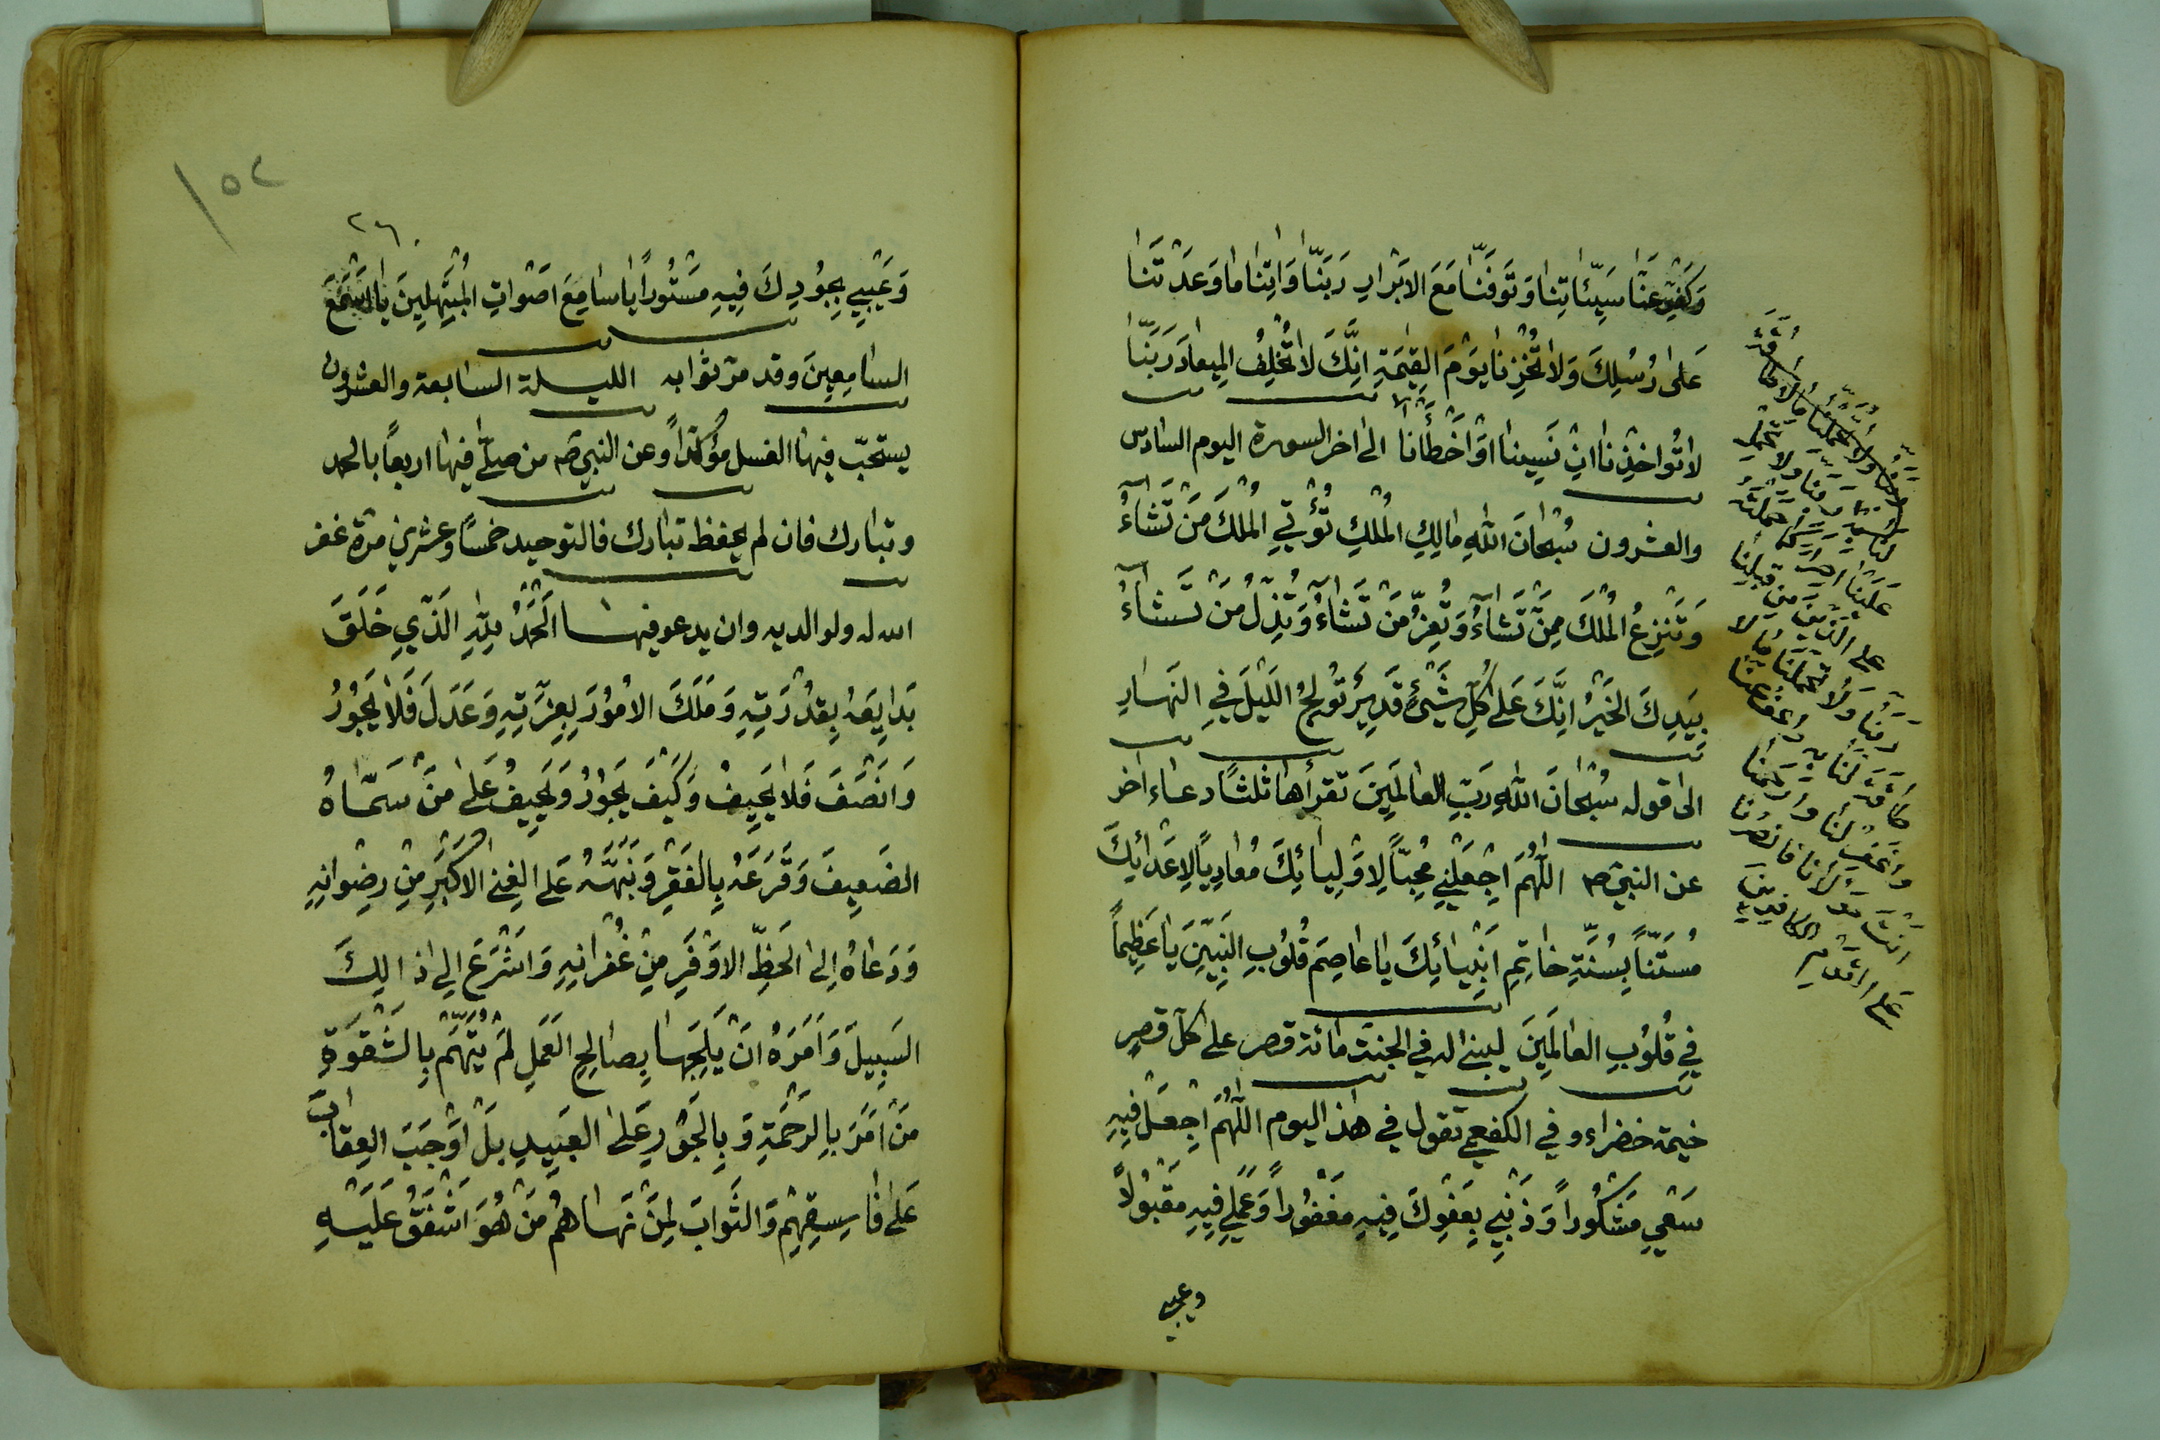 وَكَفِّرْ عَنَّا سَيِّئَاتِنَا وَتَوَفَّنَا مَعَ الْاَبْرَارِ رَبَّنَا وَاٰتِنَا مَا وَعَدْتَنَا
عَلٰى رُسُلِكَ وَلَا تُخْزِنَا يَوْمَ الْقِيٰمَةِ اِنَّكَ لَا تُخْلِفُ الْمِيعَادَ رَبَّنَا
لَا تُؤَاخِذْنَا اِنْ نَسِينَا اَوْ اَخْطَأْنَا الى اخر السورة اليوم السادس
والعشرون سُبْحَانَ اللّٰهِ مَالِكِ الْمُلْكِ تُؤْتِي الْمُلْكَ مَنْ تَشَآءُ
وَتَنْزِعُ الْمُلْكَ مِمَّنْ تَشَآءُ وَتُعِزُّ مَنْ تَشَآءُ وَتُذِلُّ مَنْ تَشَآءُ
بِيَدِكَ الْخَيْرُ اِنَّكَ عَلٰى كُلِّ شَيْءٍ قَدِيرٌ تُولِجُ اللَّيْلَ فِي النَّهَارِ
الى قوله سُبْحَانَ اللّٰهِ رَبِّ الْعَالَمِينَ تقرأها ثلثًا دعاء اخر
عن النبي ص اَللّٰهُمَّ اجْعَلْنِي مُحِبًّا لِاَوْلِيَائِكَ مُعَادِيًا لِاَعْدَائِكَ
مُسْتَنًّا بِسُنَّةِ خَاتِمِ اَنْبِيَائِكَ يَا عَاصِمَ قُلُوبِ النَّبِيِّينَ يَا عَظِيمًا
فِي قُلُوبِ الْعَالَمِينَ ليبنى له في الجنة مائة قصر على كل قصر
خيمة خضراء وفي الكفعمي تقول في هذا اليوم اَللّٰهُمَّ اجْعَلْ فِيهِ
سَعْيِي مَشْكُورًا وَذَنْبِي بِعَفْوِكَ فِيهِ مَغْفُورًا وَعَمَلِي فِيهِ مَقْبُولًا
وعيبي
عَلَيْنَا اصرا كما حملته
على الذين من قبلنا
ربنا ولا تحملنا ما لا
طاقة لنا به واعف عنا
واغفر لنا وارحمنا
انت مولانا فانصرنا
على القوم الكافرين
١٥٢
٢٦٠
وَعَيْبِي بِجُودِكَ فِيهِ مَسْتُورًا يَا سَامِعَ اَصْوَاتِ الْمُبْتَهِلِينَ يَا اَسْمَعَ
السَّامِعِينَ وقد مر ثوابه الليلة السابعة والعشرون
يستحبّ فيها الغسل مؤكدًا وعن النبي ص من صلّى فيها اربعًا بالحمد
وتبارك فان لم يحفظ تبارك فالتوحيد خمسًا وعشرين مرة غفر
الله له ولوالديه وان يدعو فيها اَلْحَمْدُ لِلّٰهِ الَّذِي خَلَقَ
بَدَايِعَهُ بِقُدْرَتِهِ وَمَلَكَ الْاُمُورَ بِعِزَّتِهِ وَعَدَلَ فَلَا يَجُورُ
وَانْصَفَ فَلَا يَحِيفُ وَكَيْفَ يَجُورُ وَيَحِيفُ عَلٰى مَنْ سَمَّاهُ
الضَّعِيفَ وَقَرَعَهُ بِالْفَقْرِ وَنَبَّهَهُ عَلَى الْغِنَى الْاَكْبَرِ مِنْ رِضْوَانِهِ
وَدَعَاهُ اِلَى الْحَظِّ الْاَوْفَرِ مِنْ غُفْرَانِهِ وَاَشْرَعَ اِلٰى ذٰلِكَ
السَّبِيلَ وَاَمَرَهُ اَنْ يَلِجَهَا بِصَالِحِ الْعَمَلِ لَمْ يُتَّهَمْ بِالشِّقْوَةِ
مَنْ اَمَرَ بِالرَّحْمَةِ وَبِالْجَوْرِ عَلَى الْعَبِيدِ بَلْ اَوْجَبَ الْعِقَابَ
عَلٰى فَاسِقِهِمْ وَالثَّوَابَ لِمَنْ نَهَاهُمْ مَنْ هُوَ اَشْفَقُ عَلَيْهِ